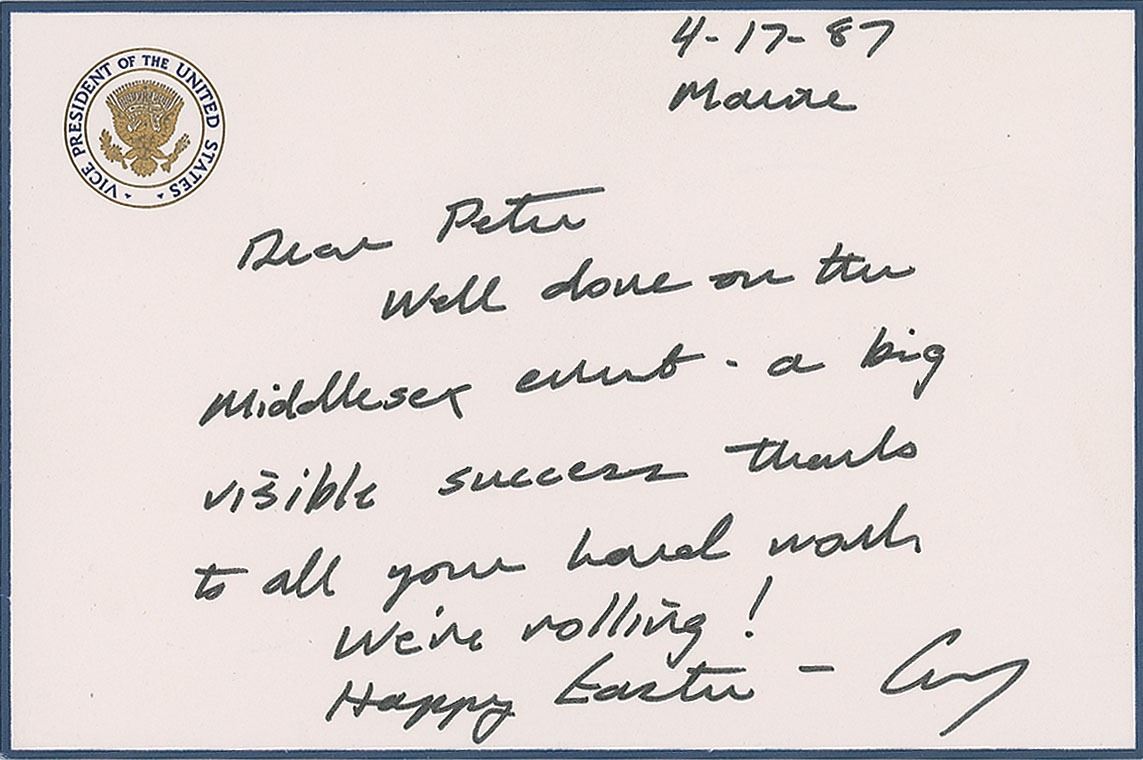 4-17-87
Maine
VICE PRESIDENT OF THE UNITED STATES
Dear Peter
Well done on the
Middlesex event - a big
visible success thanks
to all your hard work
We're rolling!
Happy Easter -